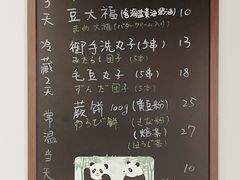 3天 冷藏2天 常温当天
豆大福(含海盐黄油奶油) 10
まめ大福(バタークリーム入り)
御手洗丸子(5串) 13
みたらし団子(5本)
毛豆丸子(5串) 18
ずんだ団子(5本)
蕨餅 100g(黄豆粉) 25
わらび餅 (きな粉)
(焙茶) 27
(ほうじ茶)